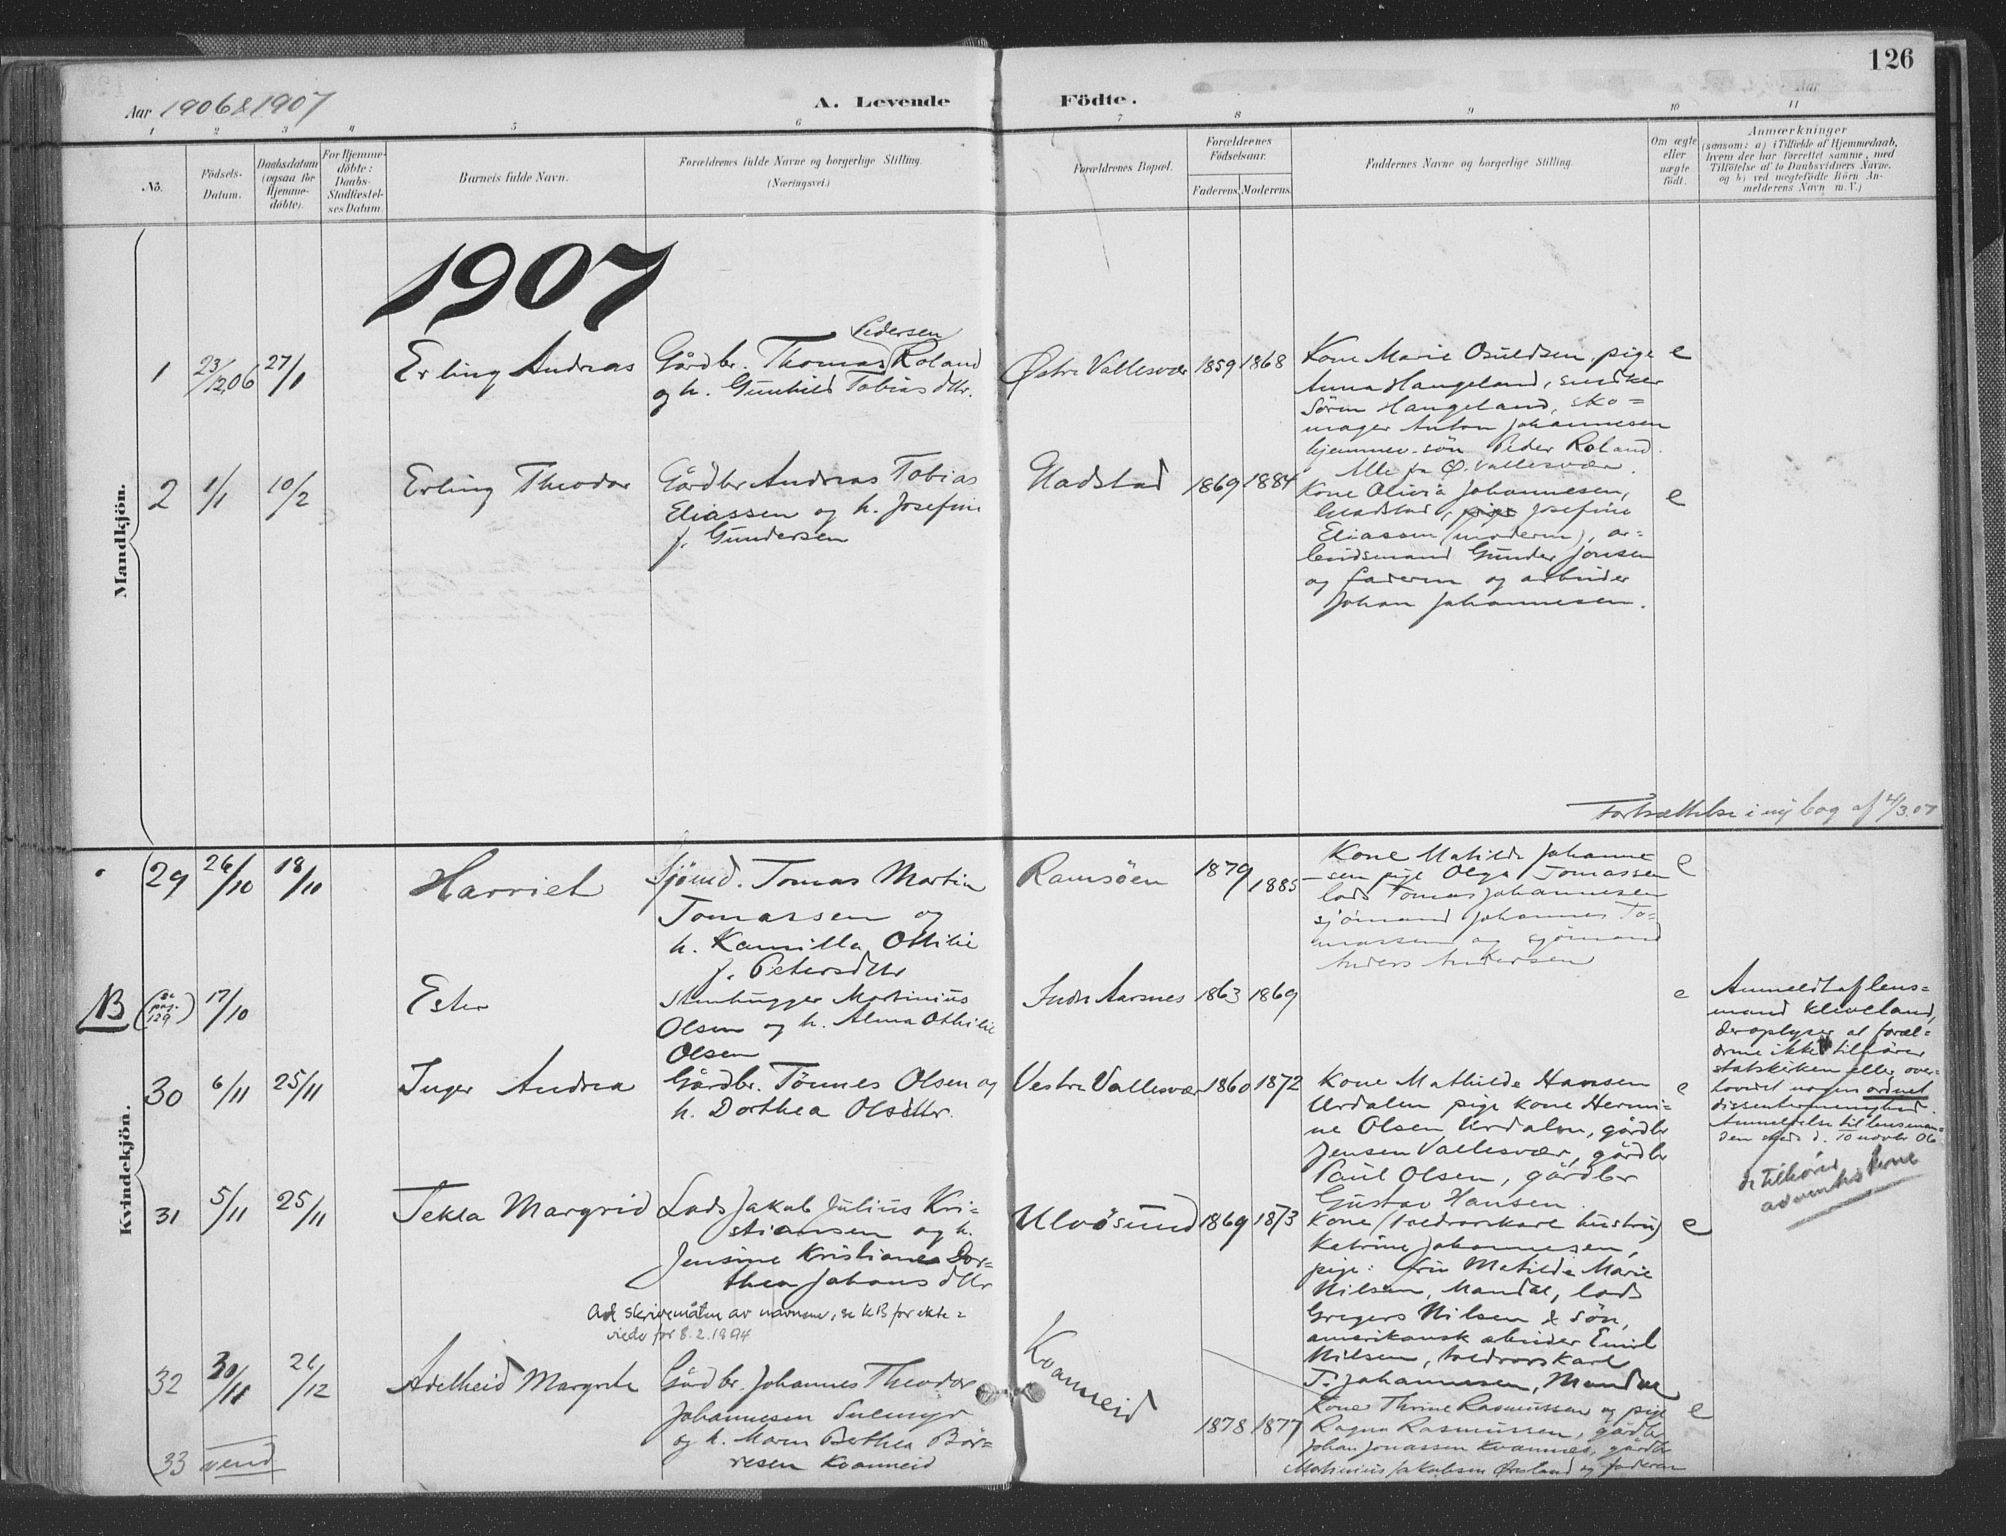 126
Aar 1906 & 1907
A. Levende Födte.
Aar
1 2 3 4 5 6 7 8 9 10 11
No.
Födsels-
Datum.
Daabsdatum
(ogsaa for
Hjemme-
döbte).
For Hjemme-
döbte:
Daabs-
Stadfæstel-
ses Datum
Barnets fulde Navn.
Forældrenes fulde Navne og borgerlige Stilling.
(Næringsvei.)
Forældrenes Bopæl.
Forældrenes
Födselsaar.
Faderens. Moderens.
Faddernes Navne og borgerlige Stilling.
Om ægte
eller
uægte
födt.
Anmærkninger
(saasom: a) i Tilfælde af Hjemmedaab,
hvem der har forrettet samme, med
Tilföielse af to Daabsvidners Navne.
og b) ved uegtefödte Börn An-
melderens Navn m. V.)
Mandkjön.
1907
1 23/12 06 27/1
Erling Andreas
Pedersen
Gårdbr. Thomas Roland
og h. Gunhild Tobiasdttr.
Østre Vallesvær 1859 1868
Kone Marie Osuldsen, pige
Anna Haugeland, snedker
Sören Haugeland, sko=
mager Anton Johannesen
hjemmev. sön Peder Roland.
Alle fra Ø. Vallesvær.
e
2 1/1 10/2
Erling Theodor
Gårdbr Andreas Tobias
Eliassen og h. Josefine
f. Gundersen
Udstad 1869 1884
Kone Olivia Johannesen,
pige Josefine
Eliassen (moderen), ar=
beidsmand Gunder Jonsen
og faderen og arbeider
Johan Johannesen.
e
Fortsættelse i ny bog af 4/3.07
Kvindekjön.
29 26/10 18/11
Harriet
Sjömd. Tomas Martin
Tomassen og
h. Kamilla Ottilie
f. Petersdttr
Ramsöen 1879 1885
Kone Matilde Johanne
-sen pige Olga Tomassen
lods Tomas Johannesen
sjömand Johannes To=
massen og sjömand
Anders Andersen
e
NB (se pag. 129) 17/10
Ester
Stenhugger Martinius
Olsen og h. Alma Othilie
Olsen
Indre Aarsnes 1863 1869
e
Anmeldt af lens=
mand Kleveland,
der oplyser at foræl=
drene ikke tilhörer
statskirken eller over=
hovedet nogen ordnet
dissentermenighed.
Anmeldelse til lensman=
den skede d. 10 novbr 06
de tilhörer
adventisterne
30 6/11 25/11
Inger Andrea
Gårdbr. Tönnes Olsen og
h. Dorthea Olsdttr.
Vestre Vallesvær 1860 1872
Kone Mathilde Hansen
Urdalen pige kone Hermi=
ne Olsen Urdalen, gårdbr
Jensen Vallesvær, gårdbr
Paul Olsen, gårdbr
Gustav Hansen
e
31 5/11 25/11
Tekla Margrid
Lods Jakob Julius Kri=
stiansen og h.
Jensine Kristiane Dor=
thea Johansdttr
Ulvösund 1869 1873
Kone (toldrorskarl hustru)
Katrine Johannesen,
pige: Gria Matilde Marie
Nilsen, Mandal, lods
Gregers Nilsen & Sön,
amerikansk arbeider Emil
Nilsen, toldrorskarl
T. Johannesen, Mandal
e
Ad skrivemåten av navnene, se KB for ekte=
viede for 8.2.1894
32 30/11 26/12
Adelheid Margrete
Gårdbr. Johannes Theodor
Johannesen Suemyr
og h. Maren Bethea Bör=
resen Kvanneid
Kvanneid
1878 1877
Kone Thrine Rasmussen og pige
Ragna Rasmussen, gårdbr
Johan Jonassen Kvannes, gårdbr
Mathinius Jakobsen Öresland og faderen
e
33 vend